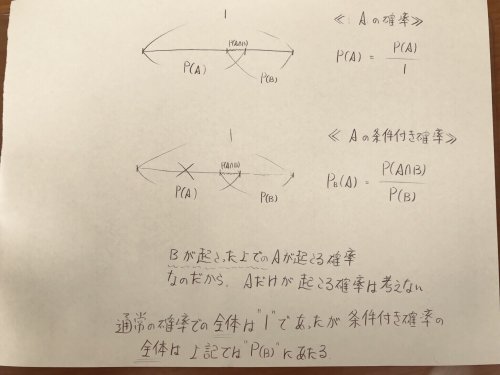 1
P(A∩B)
P(A)
P(B)
≪ Aの確率≫
P(A) = P(A) / 1
1
P(A∩B)
P(A)
P(B)
≪ Aの条件付き確率≫
P_B(A) = P(A∩B) / P(B)
Bが起こった上でのAが起こる確率
なのだから、Aだけが起こる確率は考えない
通常の確率での全体は"1"であったが 条件付き確率の
全体は 上記では"P(B)"にあたる